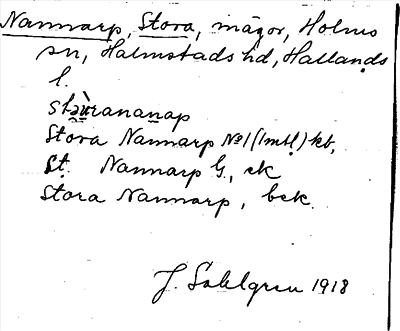 Nannarp, Stora, mägor, Holms
sn, Halmstads hd, Hallands
l.
Stora Nannarp No 1 (1 mtl) kb,
St. Nannarp G., ek
Stora Nannarp, bek.
J. Sahlgren 1918